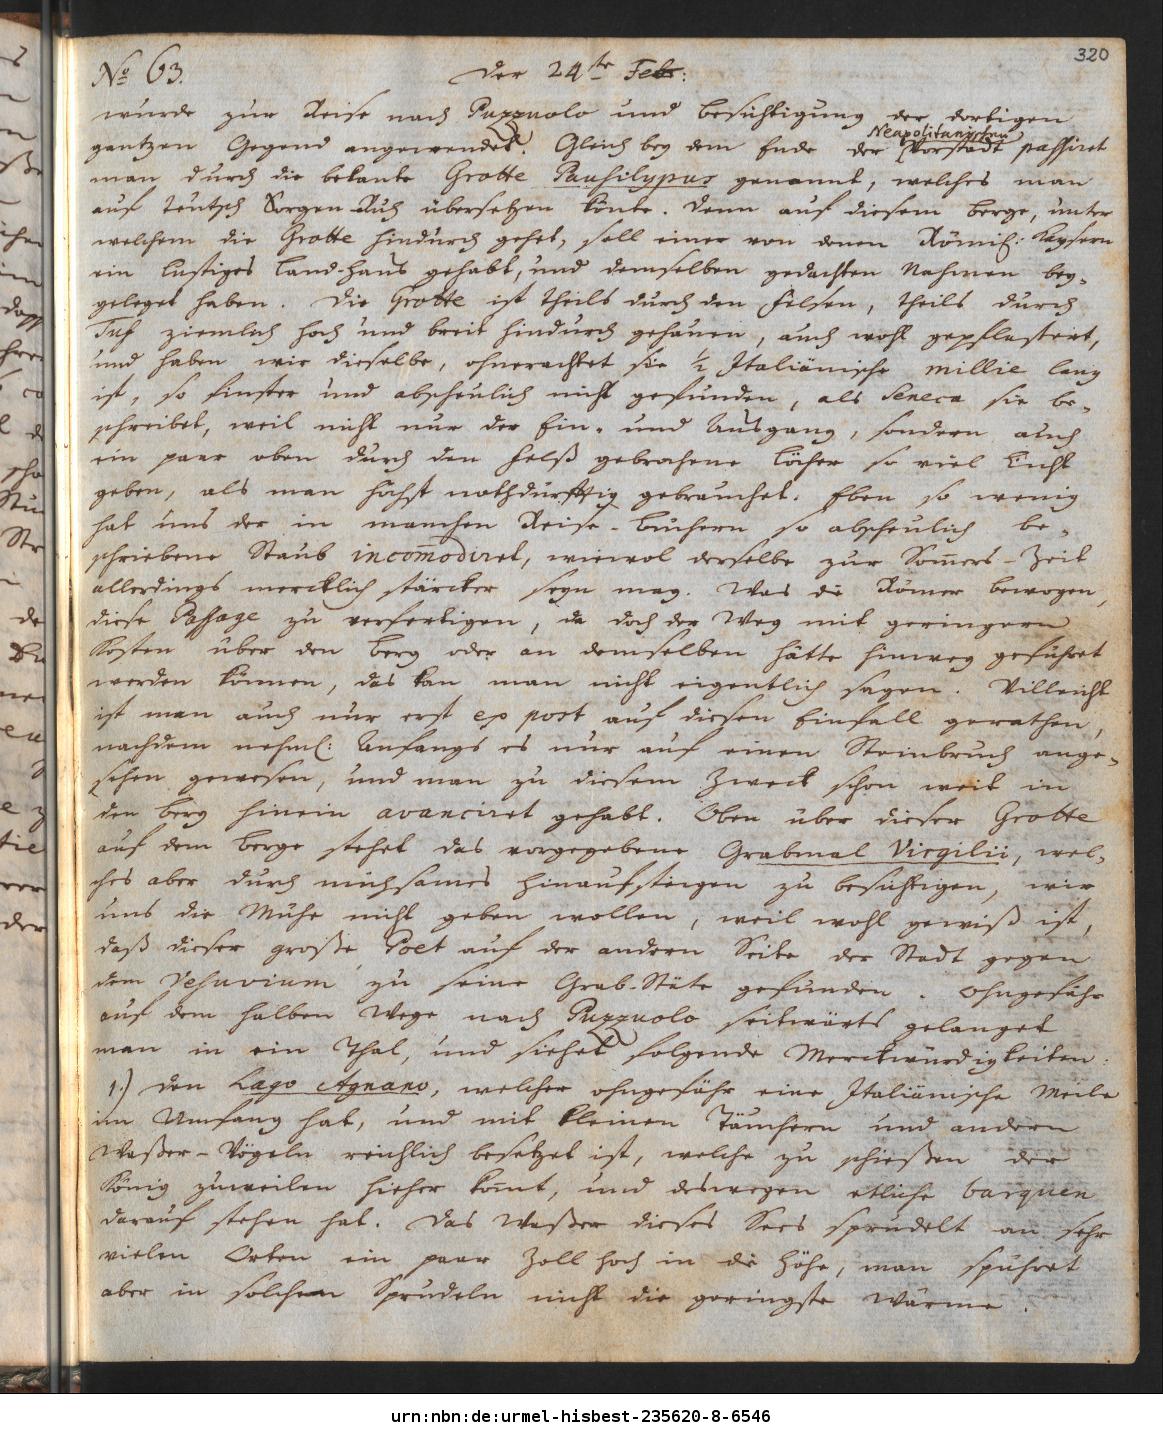 320
No 63. Der 24te Febr:
wurde zur Reise nach Puzzuolo und Besichtigung der dortigen
gantzen Gegend angewendet. Gleich bey dem Ende der Neapolitanischen Vorstadt passiret
man durch die bekante Grotte Pausilypus genannt, welches man
auf Teutsch Sorgen-Ruh übersetzen könte. Denn auf diesem Berge, unter
welchem die Grotte hindurch gehet, soll einer von denen Römis: Kaysern
ein lustiges Land-Haus gehabt, und demselben gedachten Nahmen bey-
geleget haben. Die Grotte ist theils durch den Felsen, theils durch
Tuf ziemlich hoch und breit hindurch gehauen, auch wohl gepflastert,
und haben wir dieselbe, ohnerachtet sie 1/2 Italiänische millie lang
ist, so finster und abscheulich nicht gefunden, als Seneca sie be-
schreibet, weil nicht nur der Ein- und Ausgang, sondern auch
ein paar oben durch den Felß gebrochene Löcher so viel Licht
geben, als man höchst nothdürfftig gebrauchet. Eben so wenig
hat uns der in manchen Reise-Büchern so abscheulich be-
schriebene Staub incom̄odiret, wiewol derselbe zur Som̄ers-Zeit
allerdings mercklich stärcker seyn mag. Was die Römer bewogen,
diese Passage zu verfertigen, da doch der Weg mit geringern
Kosten über den Berg oder an demselben hätte hinweg geführet
werden können, das kan man nicht eigentlich sagen. Villeicht
ist man auch nur erst ex post auf diesen Einfall gerathen,
nachdem nehml: Anfangs es nur auf einen Steinbruch ange-
sehen gewesen, und man zu diesem Zweck schon weit in
den Berg hinein avanciret gehabt. Oben über dieser Grotte
auf dem Berge stehet das vorgegebene Grabmal Virgilii, wel-
ches aber durch mühsames Hinaufsteigen zu besichtigen, wir
uns die Mühe nicht geben wollen, weil wohl gewiß ist,
daß dieser große Poet auf der andern Seite der Stadt gegen
dem Vesuvium zu seine Grab-Stäte gefunden. Ohngefähr
auf dem halben Wege nach Puzzuolo seitwärts gelanget
man in ein Thal, und siehet folgende Merckwürdigkeiten.
1.) Den Lago Agnano, welcher ohngefähr eine Italiänische Meile
im Umfang hat, und mit kleinen Täuchern und andern
Waßer-Vögeln reichlich besetzet ist, welche zu schießen der
König zuweilen hieher kom̄t, und deswegen etliche barquen
darauf stehen hat. Das Waßer dieses Sees sprudelt an sehr
vielen Orten ein paar Zoll hoch in die Höhe, man spühret
aber in solchem Sprudeln nicht die geringste Wärme.
urn:nbn:de:urmel-hisbest-235620-8-6546